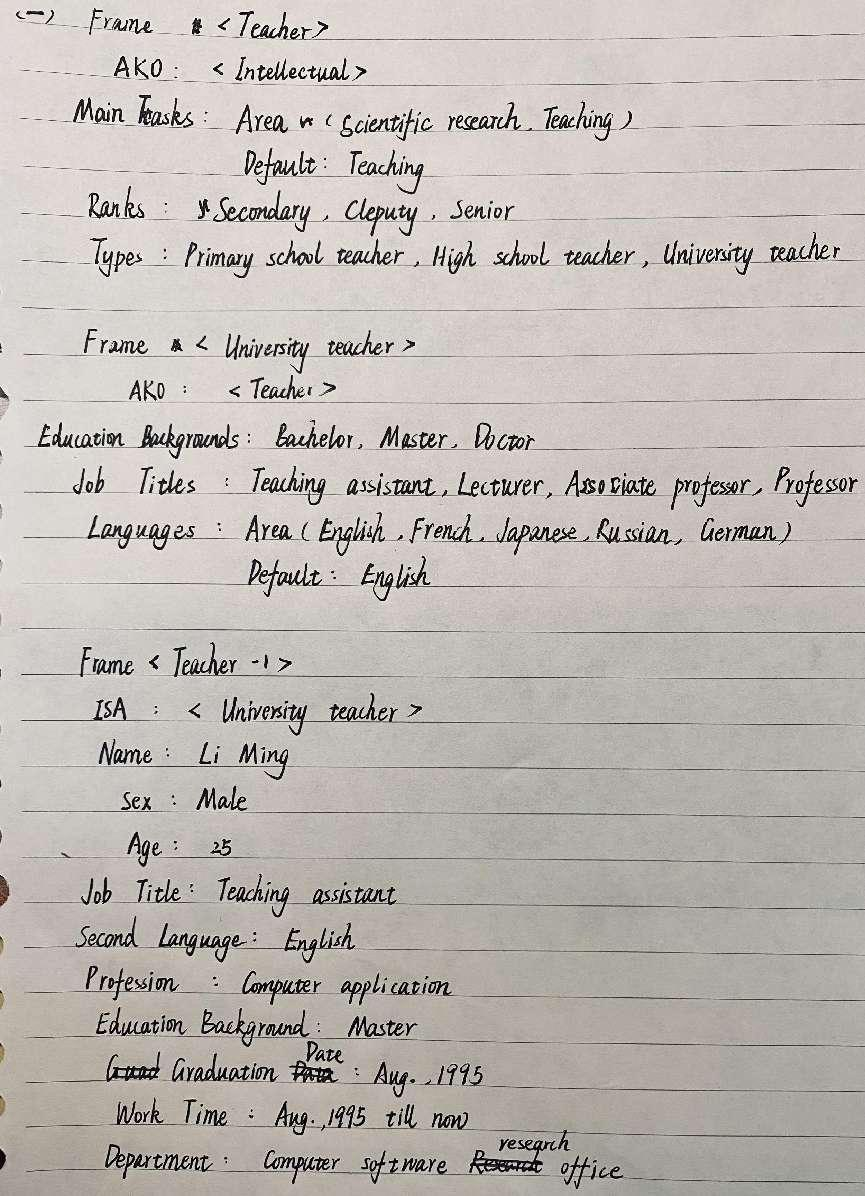 (一) Frame < Teacher >
AKO : < Intellectual >
Main Tasks : Area ( Scientific research, Teaching )
Default : Teaching
Ranks : Secondary, Cleputy, Senior
Types : Primary school teacher, High school teacher, University teacher
Frame < University teacher >
AKO : < Teacher >
Education Backgrounds : Bachelor, Master, Doctor
Job Titles : Teaching assistant, Lecturer, Associate professor, Professor
Languages : Area ( English, French, Japanese, Russian, German )
Default : English
Frame < Teacher -1 >
ISA : < University teacher >
Name : Li Ming
Sex : Male
Age : 25
Job Title : Teaching assistant
Second Language : English
Profession : Computer application
Education Background : Master
Graduation Date : Aug., 1995
Work Time : Aug., 1995 till now
Department : Computer software research office